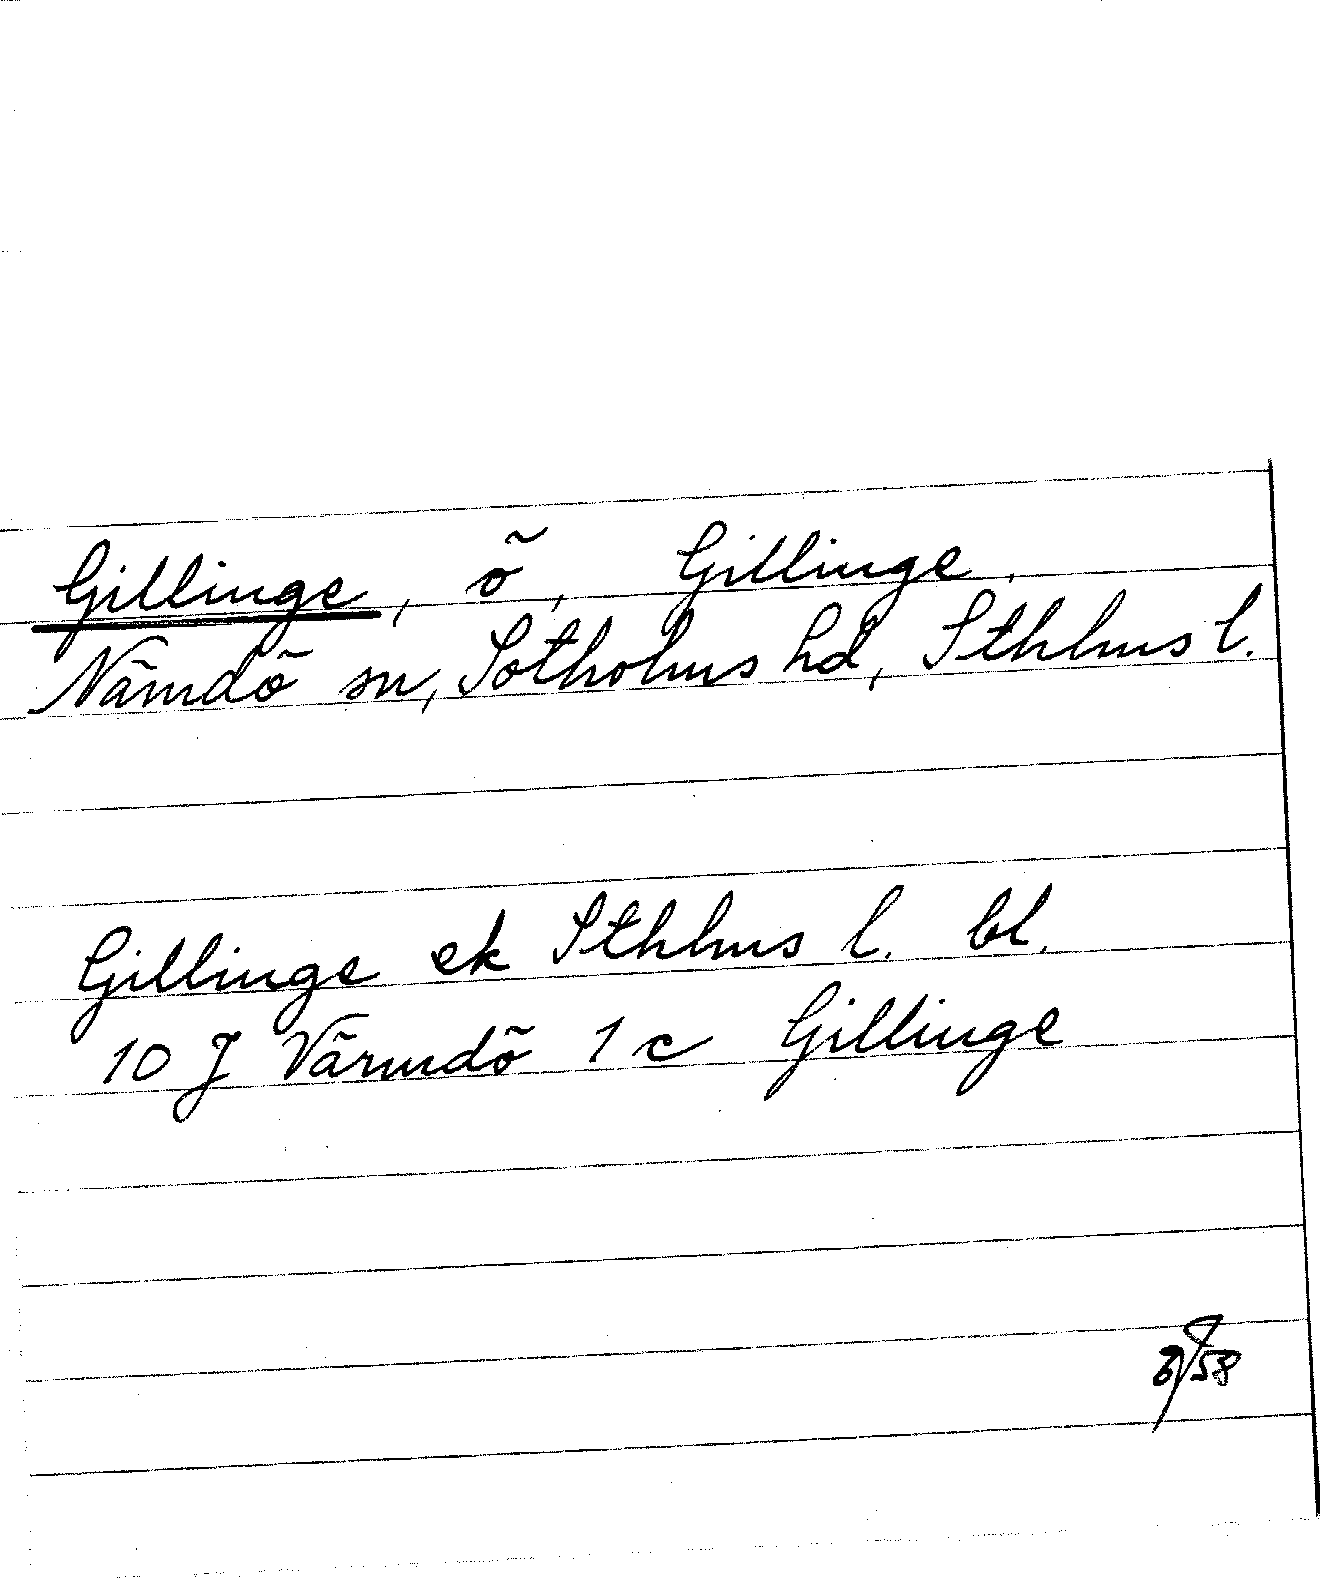 Gillinge, ö, Gillinge.
Nämdö sn, Sotholms hd, Sthlms l.
Gillinge ek Sthlms l. bl.
10 J Värmdö 1 c Gillinge